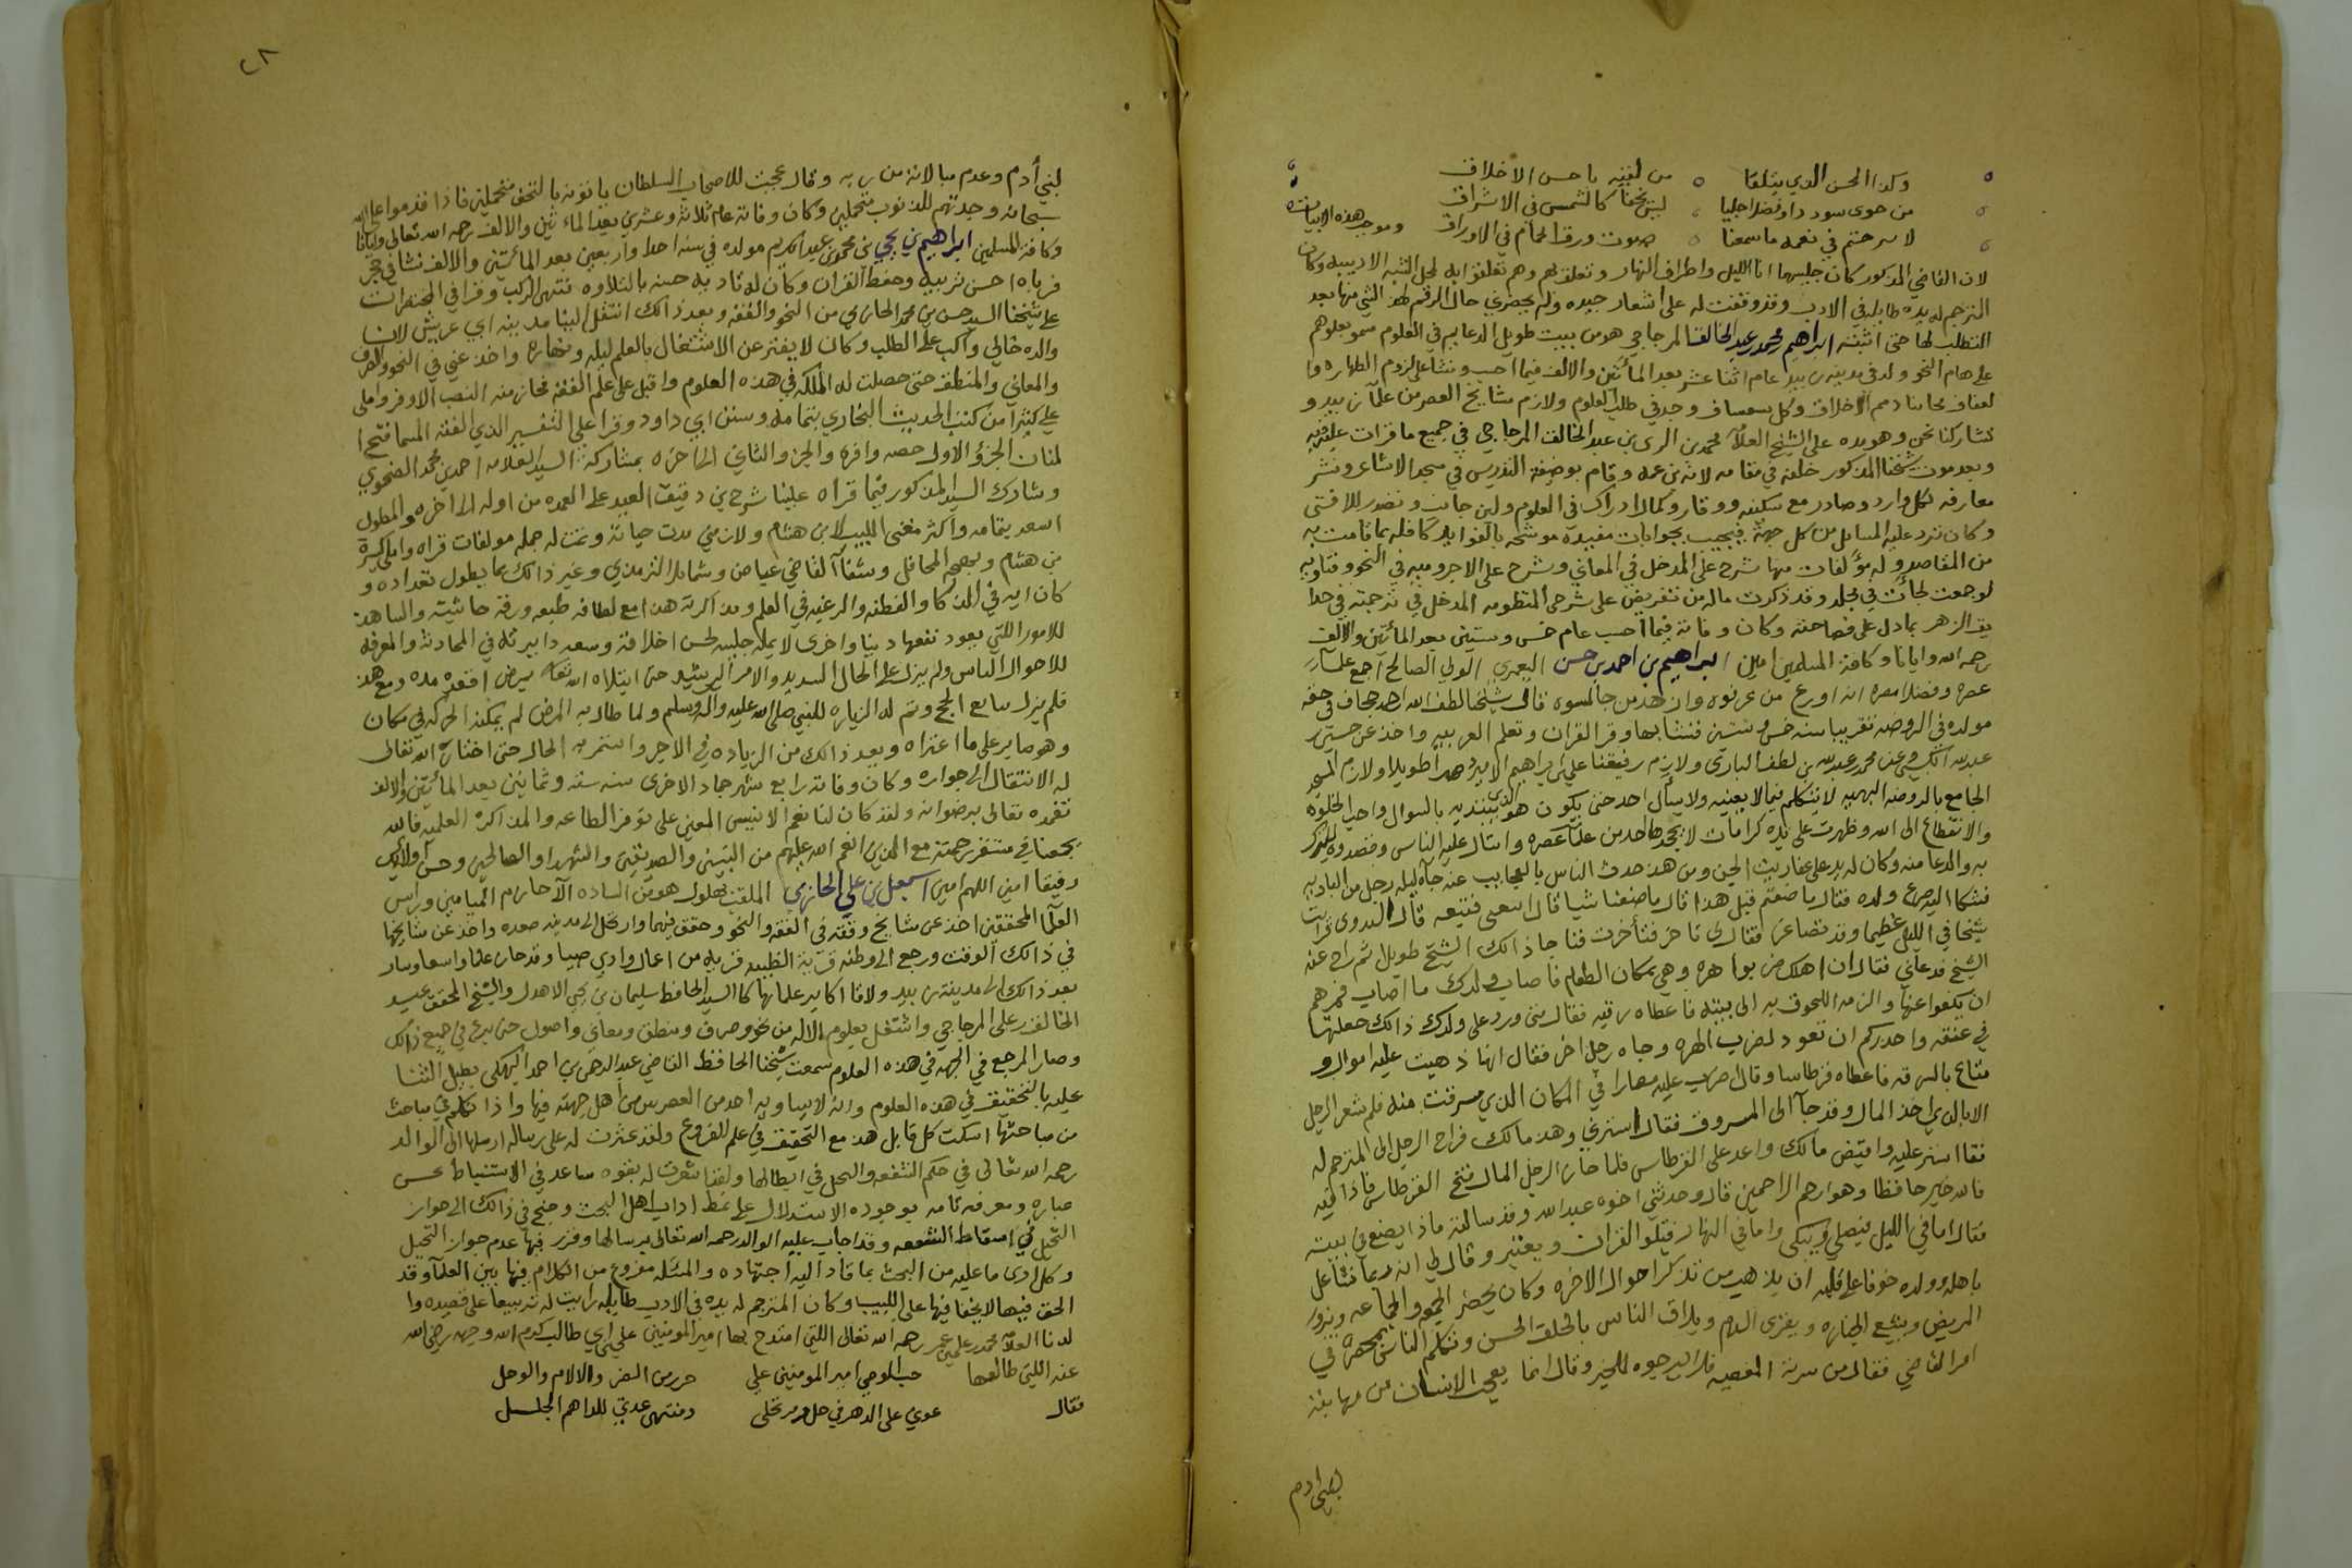 وكذا الحسن الذي يتلقا من لقيه باحسن الاخلاق
من حوى سوددا وفضلا جليا ليس يخفا كالشمس في الاشراق
لا برحتم في نعمه ما سمعنا صوت ورق الحمام في الاوراق وموجب هذه الابيات
لان القاضي المذكور كان جليسها اناء الليل واطراف النهار وتعلق بهم وهم تعلقوا به لمحل النسبه الادبيه وكان
المترجم له يده طايله في الادب وقد وقفت له على اشعار جيده ولم يحضرني حال الرقم لهذ شي منها بعد
التطلب لها حتى اثبته ابراهيم محمد عبد الخالق المزجاجي هو من بيت طويل الدعايم في العلوم سمو بعلوهم
على هام النجو ولد في مدينه زبيد عام اثنا عشر بعد المائتين والالف فيما احسب ونشا على لزوم الطهاره وا
لعفاف مجانبا ذميم الاخلاق وكل وجد في طلب العلوم ولازم مشايخ العصر من علما زبيد و
تشاركنا نحن وهو يده على الشيخ العلامه محمد بن الزين بن عبد الخالق المزجاجي في جميع ما قرات عليه فيه
وبعد موت شيخنا المذكور خلفه في مقامه لانه بن عمه وقام بوضيفه التدريس في مسجد الاشاعر ونشر
معارفه لكل وارد وصادر مع سكينه ووقار وكمال ادراك في العلوم ولين جانب وتصدر للافتى
وكان ترد عليه المسايل من كل جهه فيجيب بجوابات مفيده موشحه بالفوايد كافله بما قامت به
من المقاصد وله مؤلفات منها شرح على المدخل في المعاني وشرح على الاجروميه في النحو وفتاويه
لو جمعت لجأت في مجلد وقد ذكرت ماله من تقريض على شرحي المنظومه المدخل في ترجمته في حدا
يق الزهر بما دل على فصاحته وكان وفاته فيما احسب عام خمس وستين بعد المائتين والالف
رحمه الله وايانا وكافه المسلمين امين ابراهيم بن احمد بن حسن اليعمري الولي الصالح اجمع علما
عصره وفضلا مصره انه اورع من عرفوه وازهد من جالسوه قال شيخنا لطف الله احمد جحاف في حقه
مولده في الروضه تقريبا سنه خمس وستين فنشا بها وقرا القران وتعلم العربيه واخذ عن حسين
عبد الله الكبسي وعن محمد عبد الله بن لطف الباري ولازم رفيقنا علي ابراهيم الامير دهرا طويلا ولازم المسجد
الجامع بالروضه البهيه لا يتكلم فيما لا يعنيه ولا يسأل احد حتى يكون هو الذي يبتديه بالسوال واحب الخلوه
والانقطاع الى الله وظهرت على يده كرامات لا يجحدها احد من علما عصره وانثال عليه الناس وقصدوه للتبرك
به والدعا منه وكان له يد على عفاريت الجن ومن هذ حدث الناس بالعجايب عنه جاه ليله رجل من الباديه
فشكا اليه صرع ولده فقال ما صنعتم قبل هذا قال ما صنعنا شيا قال اتبعني فتبعه قال البدوي فرايت
شيخا في الليل عظيما وقد تضاعن فقال لي تاخر فتأخرت فناجا ذالك الشيخ طويل ثم راح عنه
الشيخ فدعاني فقال ان اهلك ضربوا هره وهي بمكان الطعام فاصاب ولدك ما اصاب فمرهم
ان يكفوا عنها والزمه اللحوق به الى بيته فاعطاه رقيه فقال متى ورد على ولدك ذالك جعلتها
في عنقه واحذركم ان تعود لضرب الهره وجاه رجل اخر فقال انها ذهبت عليه اموال و
متاع بالسرقه فاعطاه قرطاسا وقال اضرب عليه مسمارا في المكان الذي سرقت منه فلم يشعر الرجل
الا بالذي اخذ المال وقد جآ الى المسروق فقال استرني وهذ مالك فراح الرجل الى المترجم له
فقال استر عليه واقبض مالك واعد علي القرطاس فلما حاز الرجل المال فتح القرطاس فاذا فيه
فالله خير حافظا وهو ارحم الراحمين قال وحدثني اخوه عبد الله وقد سالته ماذا يصنع في بيته
فقال اما في الليل فيصلي ويبكي واما في النهار فيتلو القران ويعتبر وقال لي انه ربما تشاغل
باهله وولده خوفا على قلبه ان يذهب من تذكر احوال الاخره وكان يحضر الجمع والجماعه ويزور
المريض ويشيع الجنازه ويقري السلام ويلاق الناس بالخلق الحسن وتكلم الناس بحضرته في
امر القاضي فقال من سرته المعصيه فلا ترجوه للخير وقال انما يعجب الانسان من مهابته
لبني ادم
٢٨
لبني أدم وعدم مبالاته من ربه وقال عجبت للاصحاب السلطان ياتونه بالتحف متجملين فاذا قدموا على الله
سبحانه وجدتهم للذنوب متحملين وكان وفاته عام ثلاثه وعشرين بعد المائتين والالف رحمه الله تعالى وايانا
وكافة المسلمين ابراهيم بن يحيي بن محمد بن عبد الكريم مولده في سنه احدا واربعين بعد المائتين والالف نشا في حجر
فرباه احسن تربيه وحفظ القران وكان له تاديه حسنه بالتلاوه فتهى الركب وقرا في المختصرات
على شيخنا السيد حسن بن محمد الحازمي من النحو والفقه وبعد ذالك انتقل الينا مدينه ابي عريش لان
والده خالي واكب على الطلب وكان لا يفتر عن الاشتغال بالعلم ليله ونهاره واخذ عني في النحو والصرف
والمعاني والمنطق حتى حصلت له الملكه في هذه العلوم واقبل على علم الفقه فحاز منه النصيب الاوفر واملى
علي كثيرا من كتب الحديث البخاري بتمامه وسنن ابي داود وقرا علي التفسير الذي الفته المسما فتح ا
لمنان الجزؤ الاول حصه وافره والجز والثاني الى اخره بمشاركة السيد العلامه احمد بن محمد الضحوي
وشارك السيد المذكور فيما قراه علينا شرح بن دقيق العيد على العمده من اوله الى اخره والمطول
السعد بتمامه واكثر مغني اللبيب لابن هشام ولازمني مدت حياته وتمت له جمله مولفات قراه واملى سيرة
بن هشام وبهجه المحافل وشفآ القاضي عياض وشمايل الترمذي وغير ذالك مما يطول تعداده و
كان ايه في الذكا والفطنه والرغبه في العلم ومذاكرته هذا مع لطافه طبعه ورقه حاشيته والمباهد
للامور اللتي يعود نفعها دينا واخرى لا يمله جليسه لحسن اخلاقه وسعه دايرته في المحادثه والمعرفه
للاحوال الناس ولم يزل على الحال السديد والامر الرشيد حتى ابتلاه الله تعا بمرض اقعده مده ومع هذ
فلم يزل يتابع الحج وتم له الزياره للنبي صلى الله عليه واله وسلم ولما طال به المرض لم يمكنه الحركه في مكان
وهو صابر على ما اعتراه وبعد ذالك من الزياده في الاجر واستمر به الحال حتى اختار له الله تعالى
له الانتقال الى جواره وكان وفاته رابع شهر جماد الاخرى سنه سته وثمانين بعد المائتين والالف
تغمده تعالى برضوانه ولقد كان لنا نعم الانيس المعين على توفر الطاعه والمذاكره العلميه فالله
يجمعنا في مستقر رحمته مع الذين انعم الله عليهم من النبيين والصديقين والشهدا والصالحين وحسن اولائك
رفيقا امين اللهم امين اسمعيل بن علي الحازمي الملقب بهلول هو من الساده الآحازم الميامين وراس
العلما المحققين اخذ عن مشايخ وقته في الفقه والنحو وحقق فيهما وارتحل الى مدينه صعده واخذ عن مشايخها
في ذالك الوقت ورجع الى وطنه قرية الظبيه قريه من اعمال وادي صبيا وقد حاز علما واسعا وسار
بعد ذالك الى مدينة زبيد ولاقا اكابر علمائها كا السيد الحافظ سليمان بن يحي الاهدل والشيخ المحقق عبد
الخالق بن علي المزجاجي واشتغل بعلوم الاله من نحو وصرف ومنطق ومعاني واصول حتى برع في جميع ذالك
وصار المرجع في الجهه في هذه العلوم سمعت شيخنا الحافظ القاضي عبد الرحمن بن احمد البهكلي يطيل الثنا
عليه بالتحقيق في هذه العلوم وانه لا يساويه احد من العصريين من اهل جهته فيها واذا تكلم في مباحث
من مباحثها اسكت كل قابل هذ مع التحقيق في علم الفروع ولقد عثرت له على رساله ارسلها الى الوالد
رحمه الله تعالى في حكم الشفعه والتحيل في ابطالها ولقد شعرت له بقوه ساعد في الاستنباط بحسن
عباره ومعرفه تامه بوجوده الاستدلال على نمط اداب اهل البحث وجنح في ذالك الى جواز
التحيل في اسقاط الشفعه وقد اجاب عليه الوالد رحمه الله تعالى برساله وقرر فيها عدم جواز التحيل
وكل ادى ما عليه من البحث بما قاد اليه اجتهاده والمسئله مفروغ من الكلام فيها بين العلما وقد
الحق فيها لا يخفا فيها على اللبيب وكان المترجم له يده في الادب طايله رايت له تربيعا على قصيده وا
لدنا العلامه محمد علي عمر رحمه الله تعالى اللتي امتدح بها امير المومنين علي ابي طالب كرم الله وجهه رضي الله
عنه اللتي طالعها حب الوصي امير المومنين علي حرز من الضر والالام والوجل
فقال عوني على الدهر في حل ومرتحلي ومنتهى عدتي للداهم الجلل